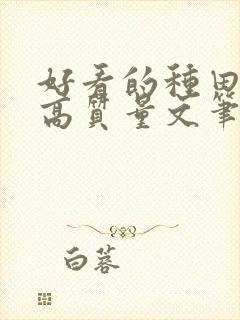 好看的種田
高質量文筆
白蓉